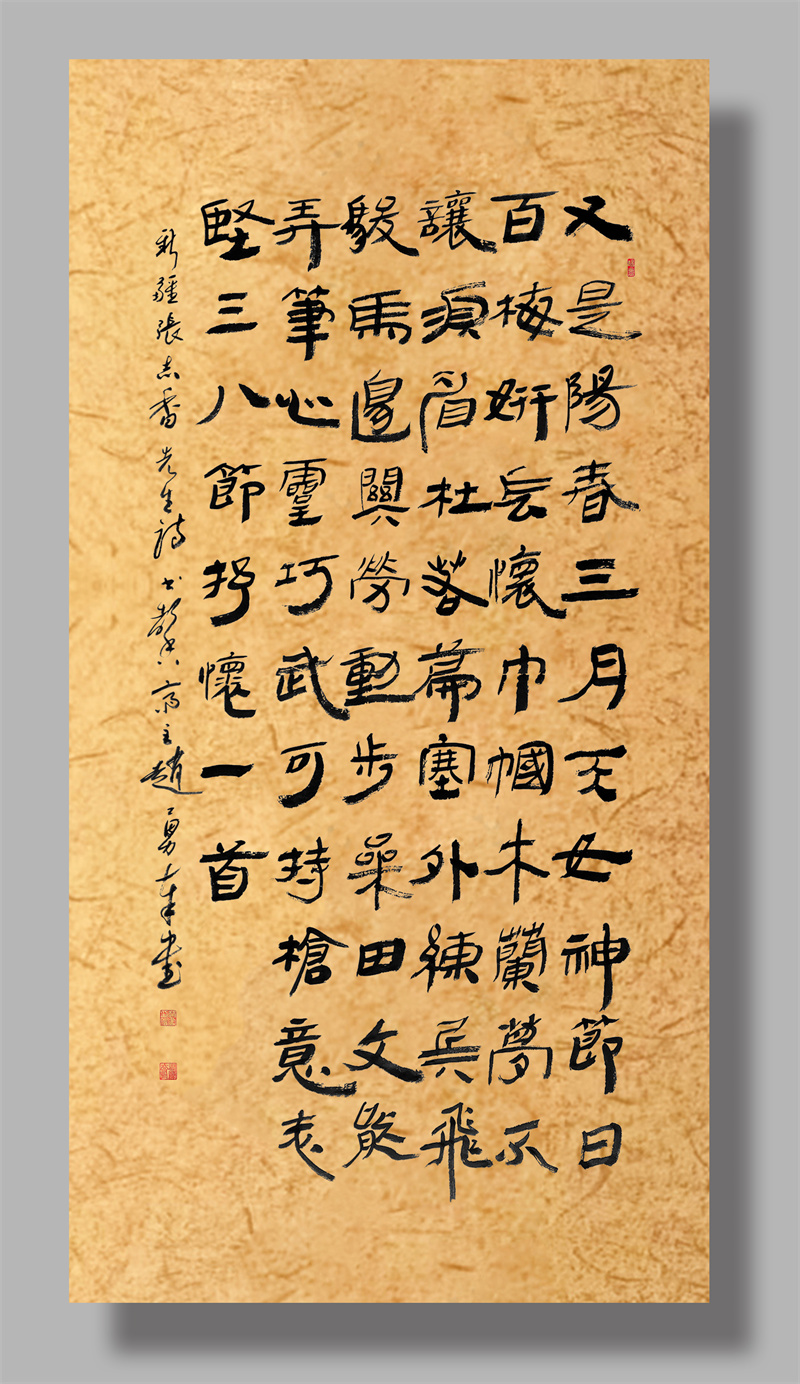 又是陽春三月天女神節日
百梅妍懷巾幗木蘭夢不
讓須眉杜若篇塞外練兵飛
駿馬邊關勞動步桑田文能
弄筆心靈巧武可持槍意志
堅三八節抒懷一首
新疆張志香先生詩齋主趙勇奉書